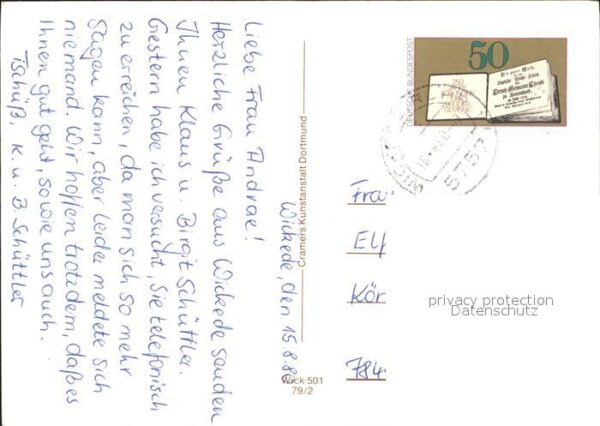 Wickede, den 15.8.80
Liebe Frau Andrae!
Herzliche Grüße aus Wickede senden
Ihnen Klaus u. Birgit Schüttler.
Gestern habe ich versucht, Sie telefonisch
zu erreichen, da man sich so mehr
sagen kann, aber leider meldete sich
niemand. Wir hoffen trotzdem, daß es
Ihnen gut geht, sowie uns auch.
Tschüß, K. u. B. Schüttler
Cramers Kunstanstalt Dortmund
Wick 501
79/2
DEUTSCHE BUNDESPOST
50
5757
WICKEDE
Frau
Elf
Kör
784
privacy protection
Datenschutz